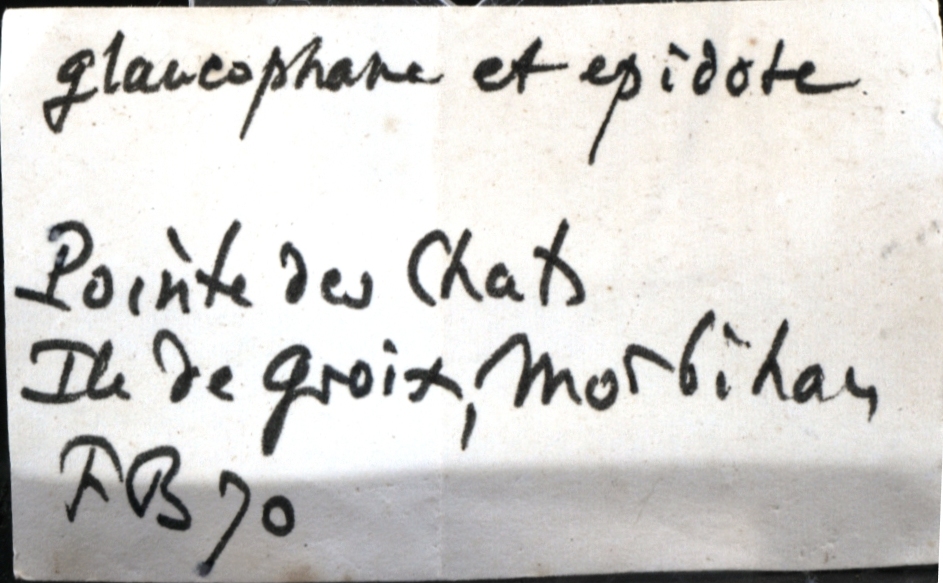 glaucophane et epidote
Pointe des Chats
Ile de Groix, Morbihan
FB 70